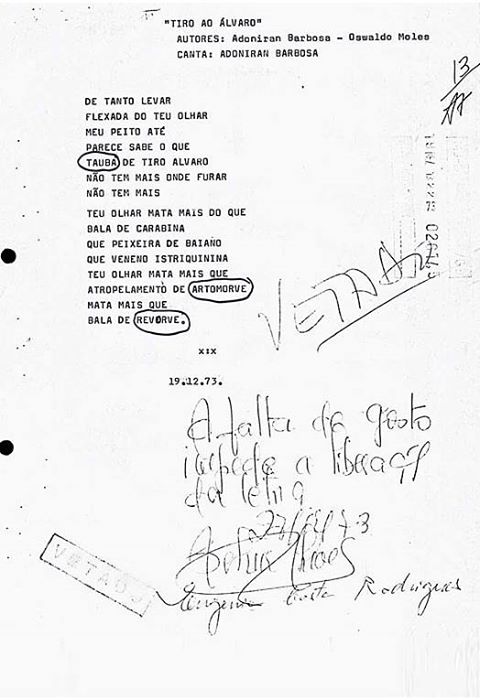 "TIRO AO ÁLVARO"
AUTORES: Adoniran Barbosa - Oswaldo Moles
CANTA: ADONIRAN BARBOSA
13
DE TANTO LEVAR
FLEXADA DO TEU OLHAR
MEU PEITO ATÉ
PARECE SABE O QUE
TAUBA DE TIRO ALVARO
NÃO TEM MAIS ONDE FURAR
NÃO TEM MAIS
TEU OLHAR MATA MAIS DO QUE
BALA DE CARABINA
QUE PEIXEIRA DE BAIANO
QUE VENENO ISTRIQUININA
TEU OLHAR MATA MAIS QUE
ATROPELAMENTO DE ARTOMORVE
MATA MAIS QUE
BALA DE REVORVE.
VETADO
xix
19.12.73.
A falta de gosto
impede a liberação
da letra
VETADO
Eugenia Costa Rodrigues